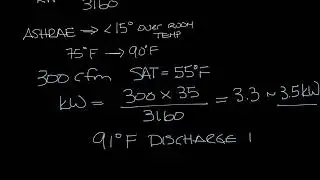 3160
ASHRAE → <15° OVER ROOM TEMP
75°F → 90°F
300 cfm SAT = 55°F
kW = 300 × 35 / 3160 = 3.3 ~ 3.5kW
91°F DISCHARGE